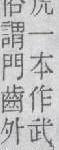 虎一本作武
俗謂門齒外